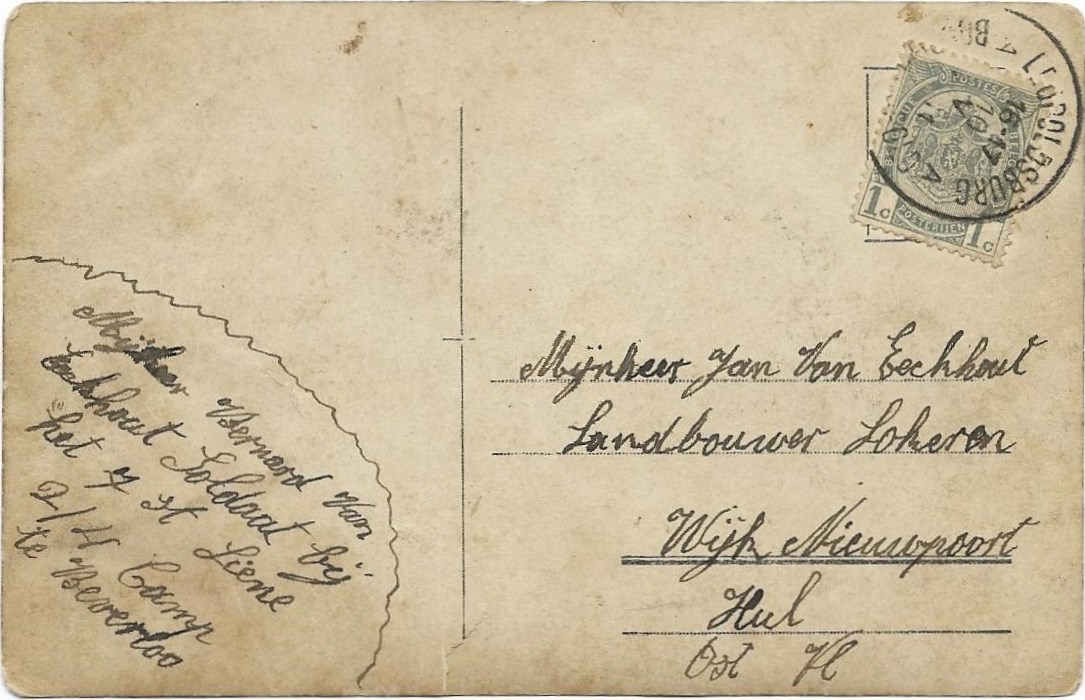 Mijnheer Bernard Van
Eechhout Soldaat bij
het 7 st Liene
2/4 Camp
te Beverloo
POSTES
BELGIQUE
1c POSTERIJEN 1c
LEOPOLDSBURG
16-17
Mijnheer Jan Van Eechhout
Landbouwer Lokeren
Wijk Nieuwpoort
Hul
Ost Vl